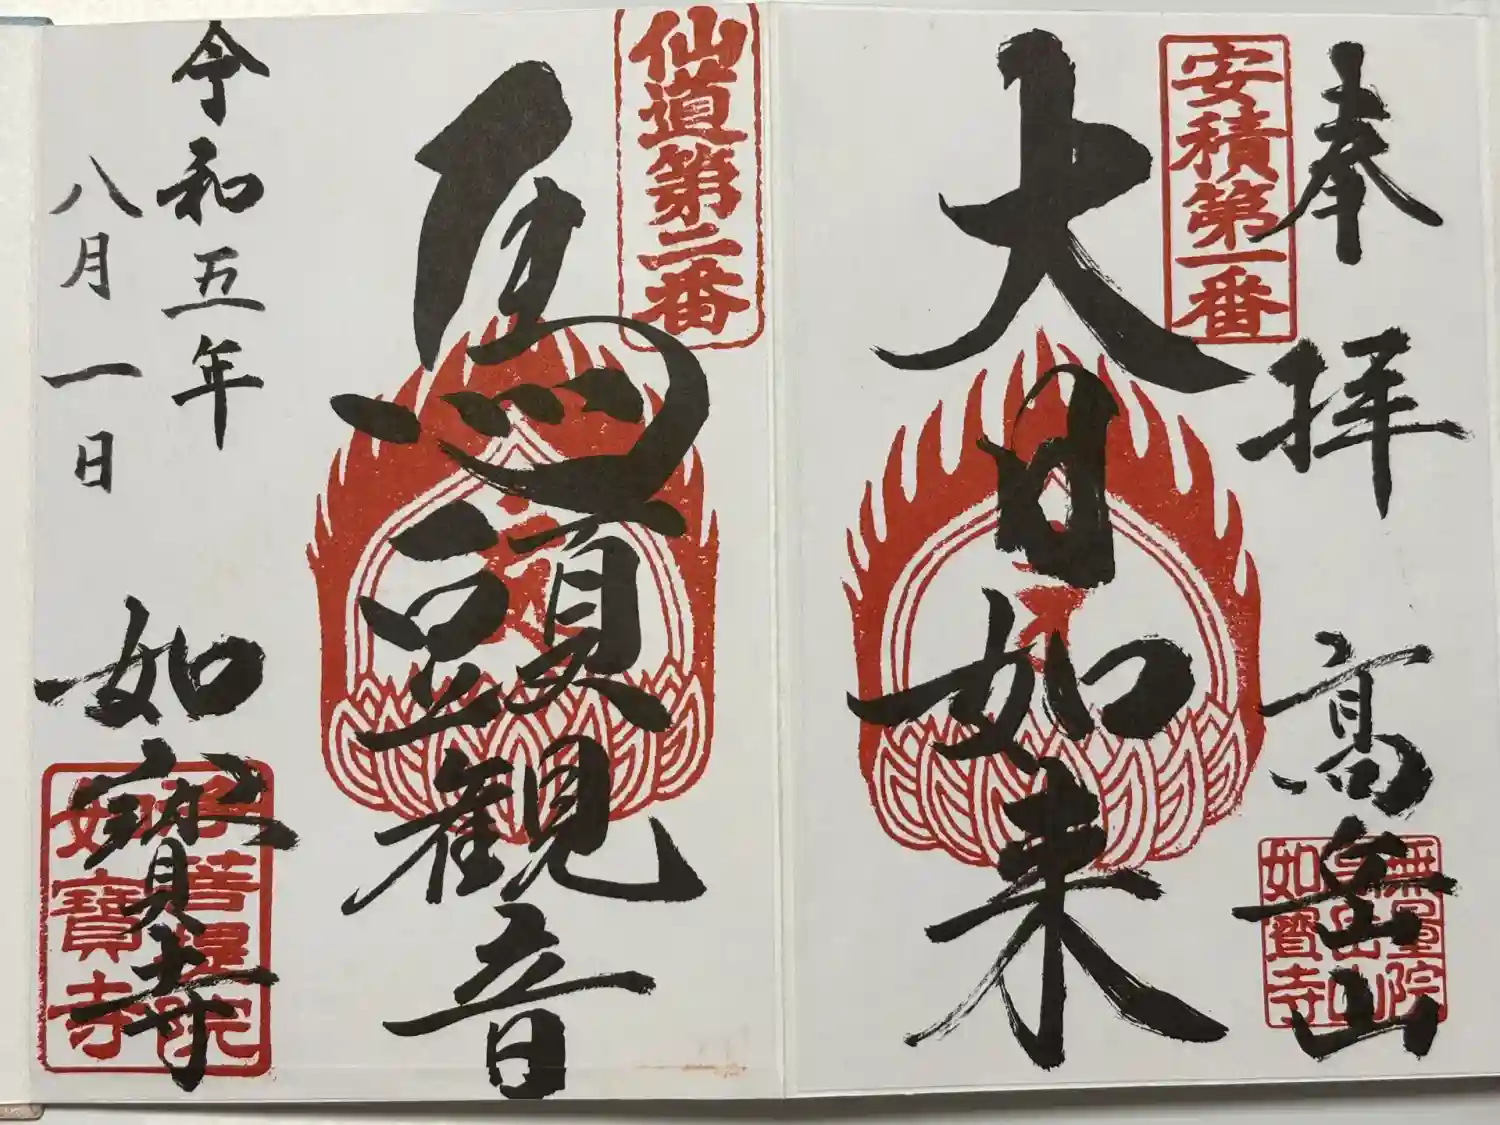 奉拝 高岳山
安積第一番
大日如来
無量院
如寶寺
仙道第二番
馬頭観音
令和五年
八月一日
如寳寺
菩提院
如寶寺